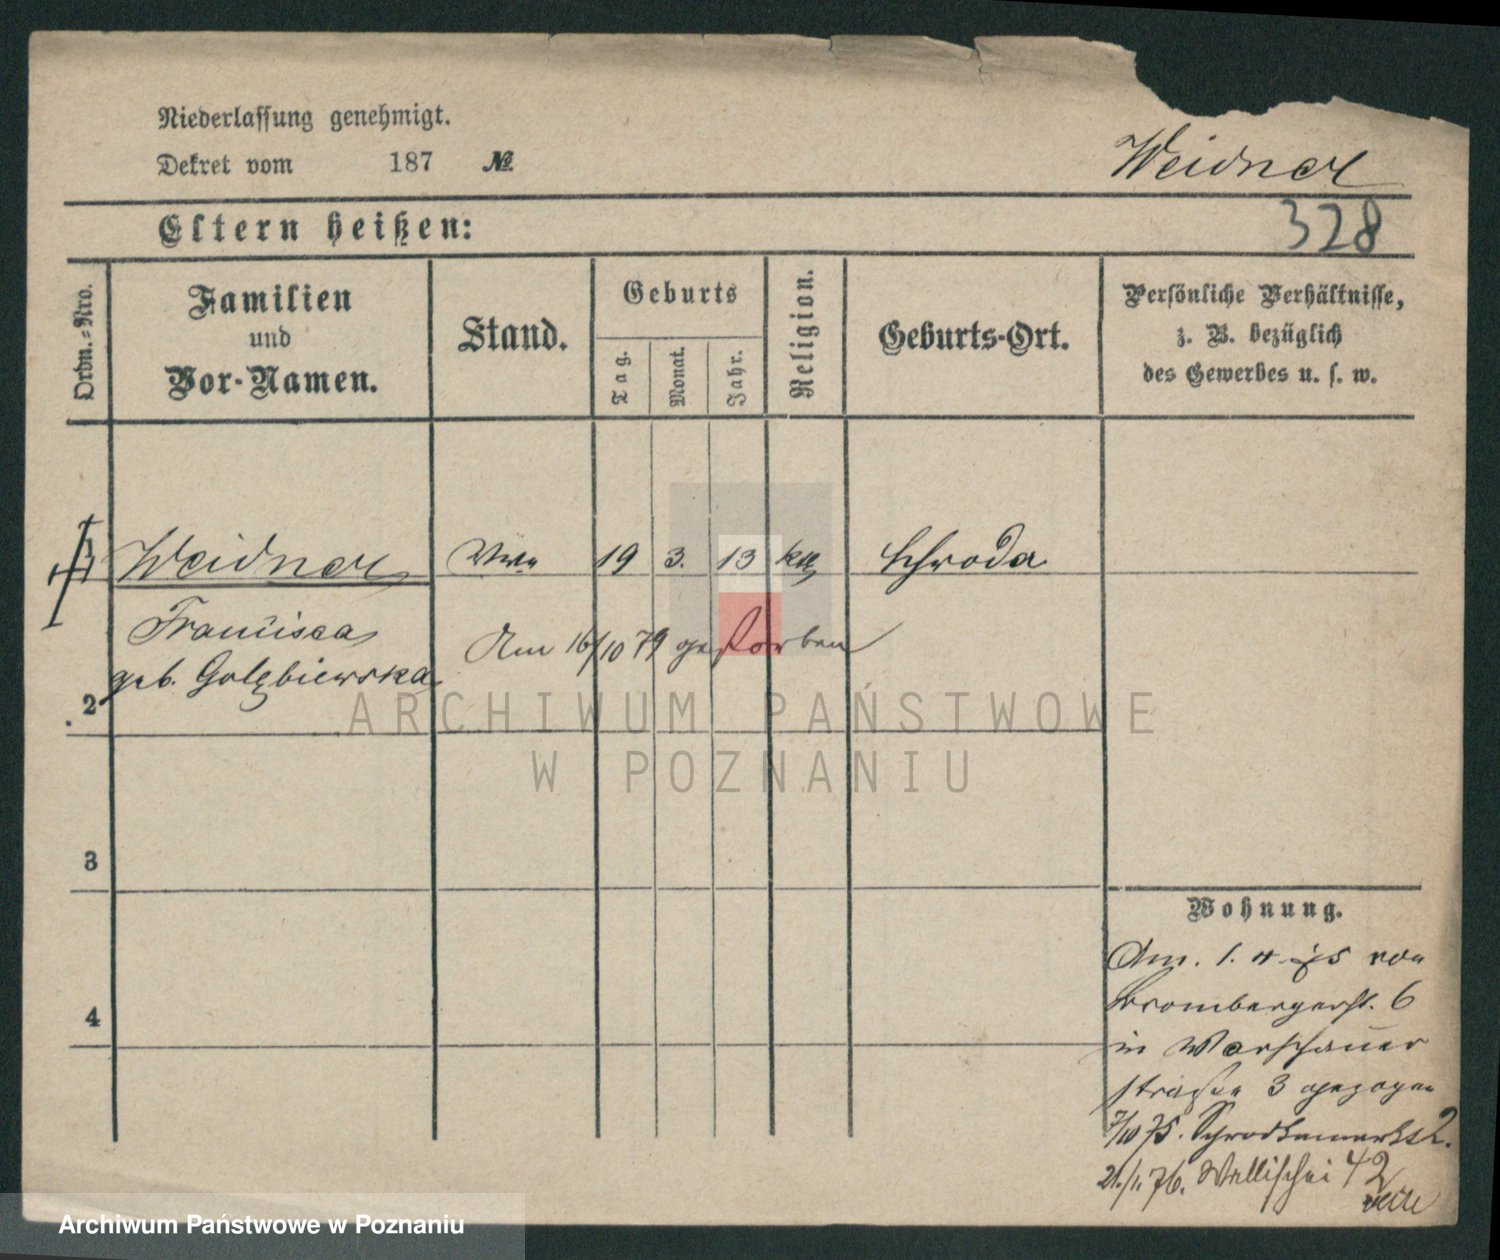 Niederlassung genehmigt.
Dekret vom 187 №
Weidner
Eltern heißen:
328
Ordn.-Nro.
Familien
und
Vor-Namen.
Stand.
Geburts
Tag.
Monat.
Jahr.
Religion.
Geburts-Ort.
Persönliche Verhältnisse,
z. B. bezüglich
des Gewerbes u. s. w.
Weidner 19 3. 13 kath Schroda
Francisca
geb. Golębiewska
Am 16/10 79 gestorben
2
ARCHIWUM PAŃSTWOWE
W POZNANIU
3
4
Wohnung.
Am 1. 75 von
Brombergerst. 6
in Warschauer
straße 3 gezogen
7/10 75. Schrodkamarkt 2.
21/1. 76. Wallischei 42
Archiwum Państwowe w Poznaniu